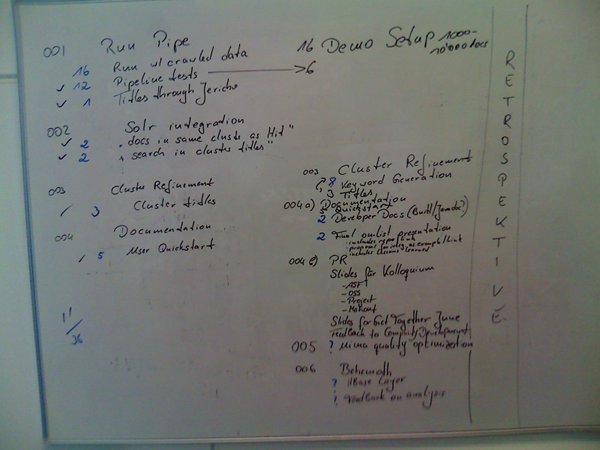 001 Run Pipe
16 Run w/ crawled data
✓ 12 Pipeline tests → 6
✓ 1 Titles through Jericho
002 Solr integration
✓ 2 "docs in same cluster as Hit"
✓ 2 "search in cluster titles"
003 Cluster Refinement
/ 3 Cluster titles
004 Documentation
/ 5 User Quickstart
11/36
16 Demo Setup 1000-10'000 docs
003 Cluster Refinement
8 Keyword Generation
3 Titles
004a) Documentation
Quickstart
2 Developer Docs (Build/Javadoc?)
2 Final mailist presentation
004c) PR
Slides für Kolloquium
- ASF
- OSS
- Project
- Mahout
Slides for Get Together June
Feedback to Community/Development
005 ? Mima quality optimization
006 Behemoth
? HBase Layer
? Feedback on analysis
RETROSPEKTIVE